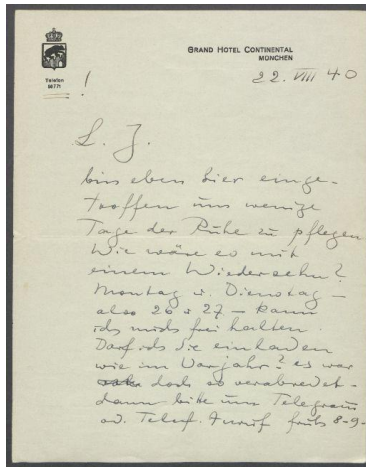 GRAND HOTEL CONTINENTAL
MÜNCHEN
Telefon
22. VIII 40
!
L. J.
bin eben hier einge-
troffen um wenige
Tage der Ruhe zu pflegen
Wie wäre es mit
einem Wiedersehn?
Montag u. Dienstag –
also 26 u 27 – kann
ich mich frei halten.
Darf ich Sie einladen
wie im Vorjahr? es war
doch so verabredet –
dann bitte um Telegramm
od. Telef. Anruf früh 8-9-